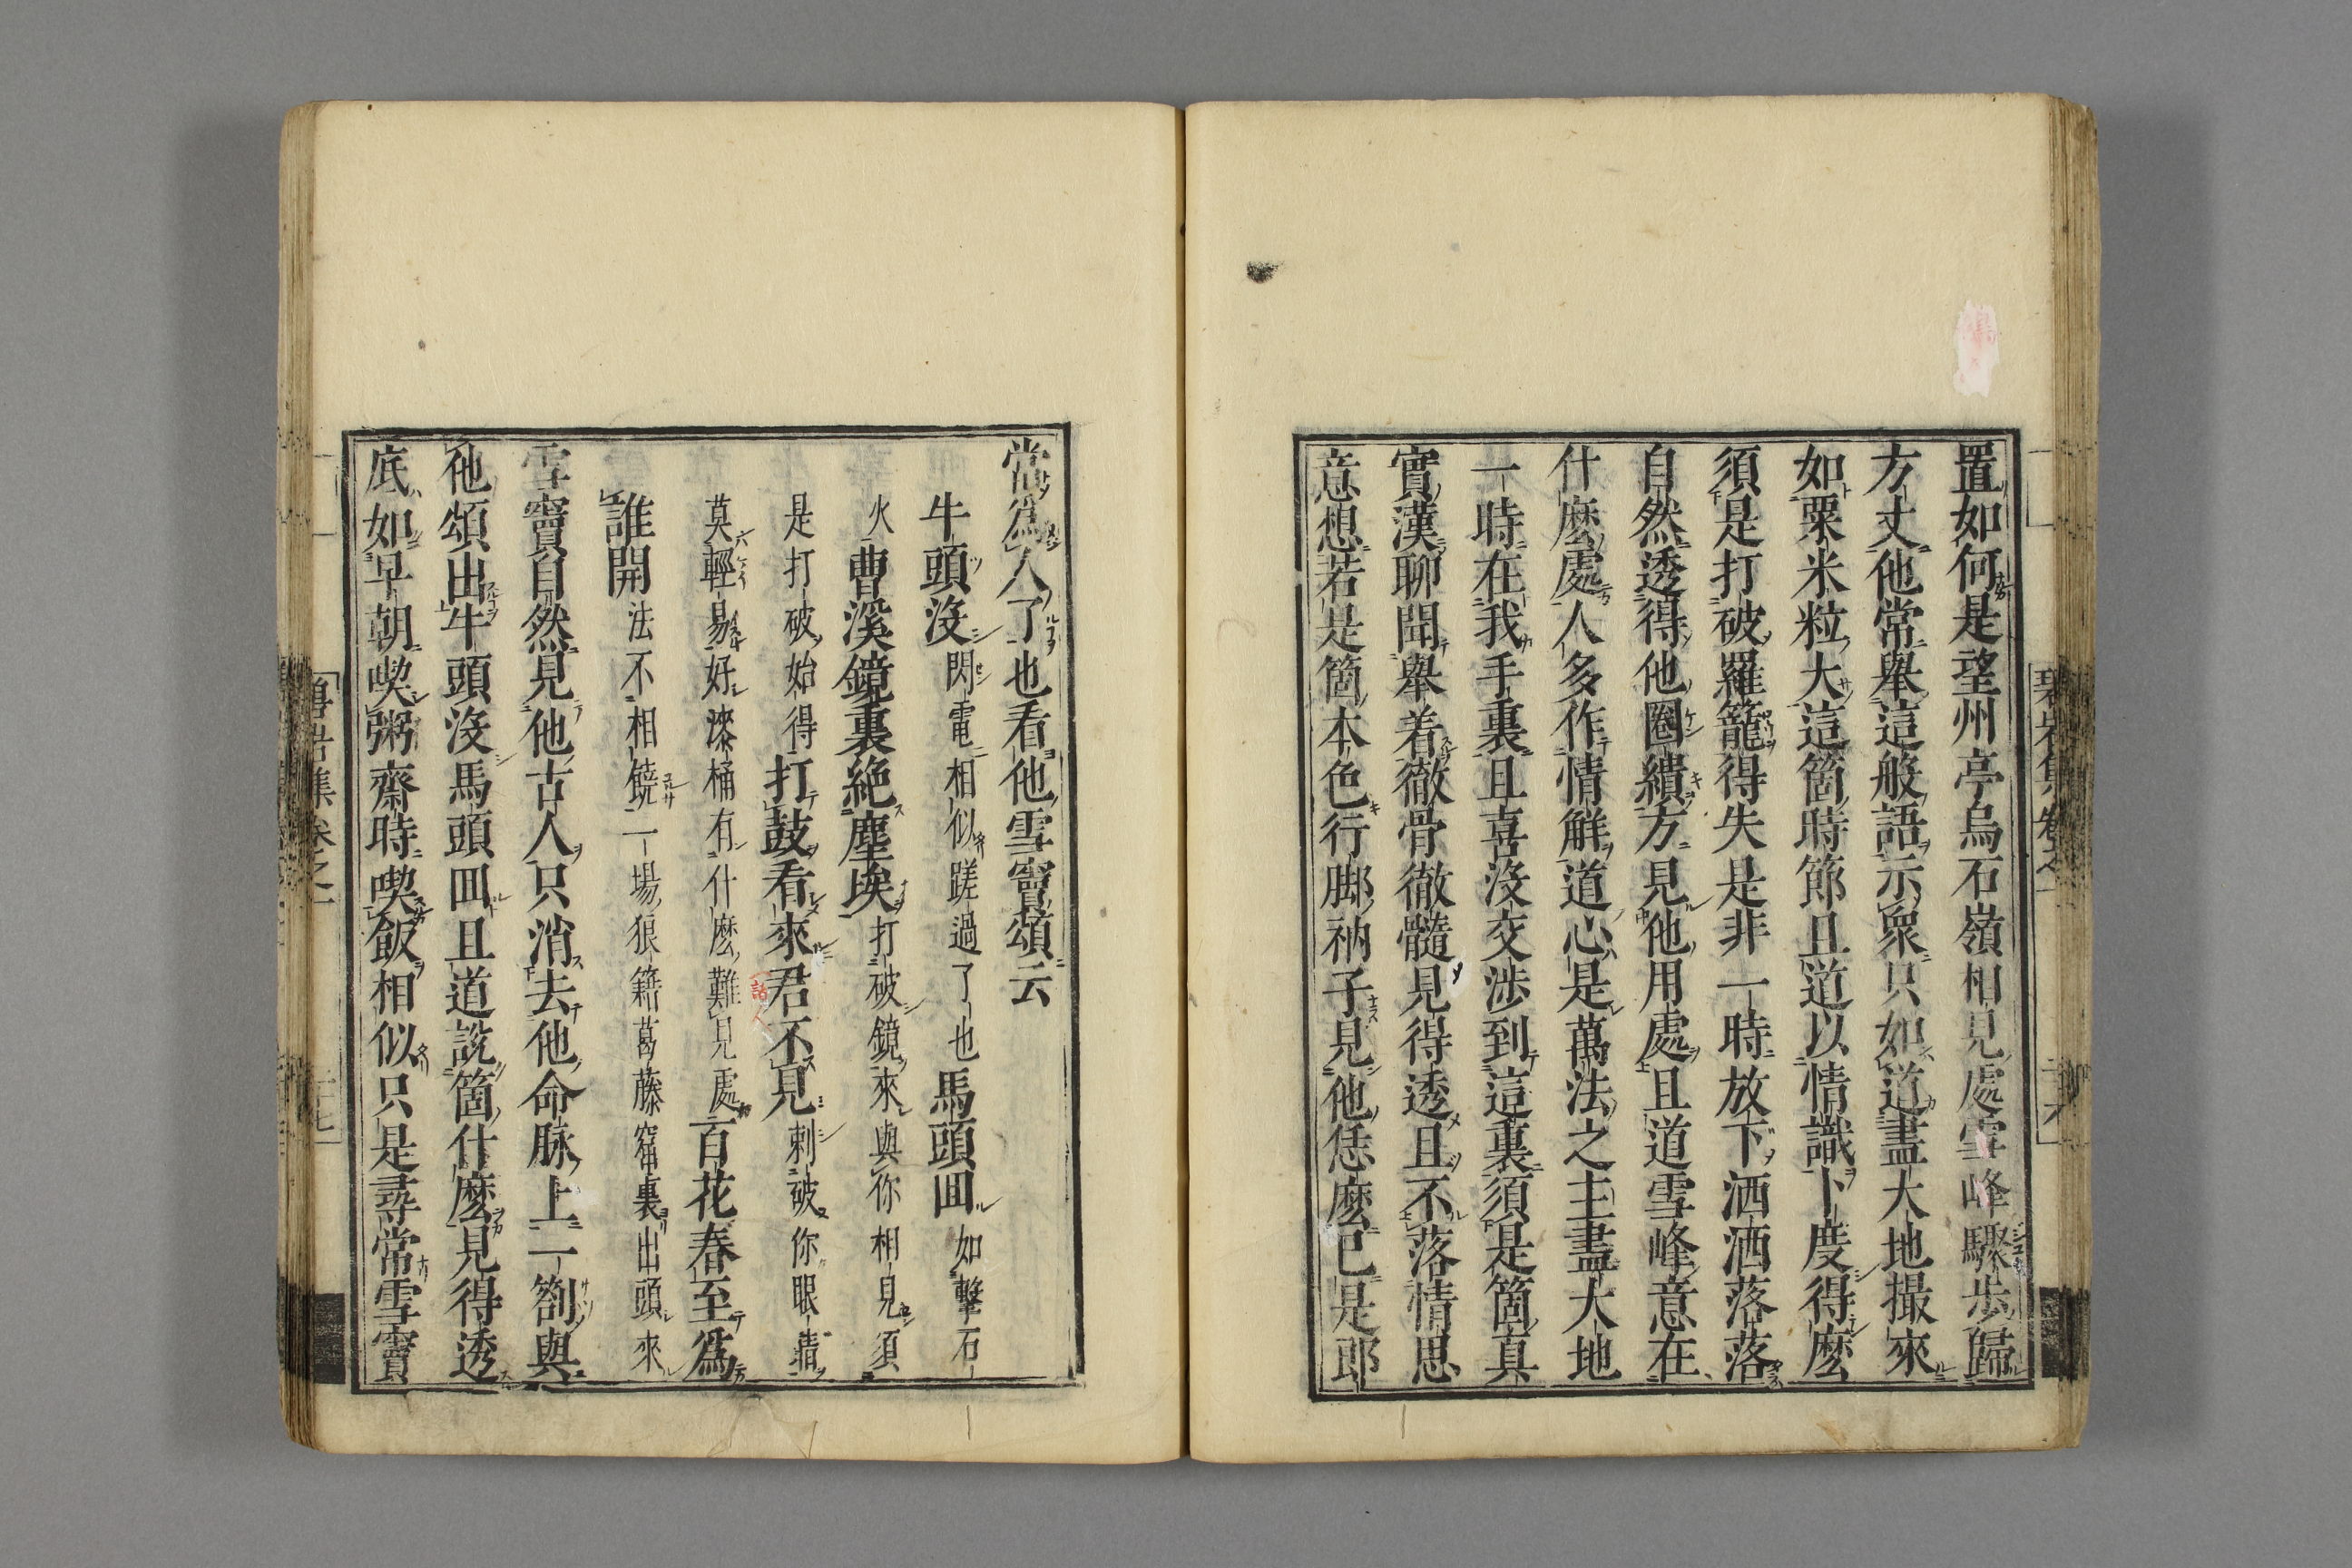 置如何是望州亭烏石嶺相見處雪峰驟步歸
方丈他常舉這般語示衆只如道盡大地撮來
如粟米粒大這箇時節且道以情識卜度得麽
須是打破羅籠得失是非一時放下洒洒落落
自然透得他圈繢方見他用處且道雪峰意在
什麽處人多作情解道心是萬法之主盡大地
一時在我手裏且喜没交渉到這裏須是箇真
實漢聊聞舉着徹骨徹髓見得透且不落情思
意想若是箇本色行脚衲子見他恁麽已是郎
當爲人了也看他雪竇頌云
牛頭没閃電相似蹉過了也馬頭回如擊石
火曹溪鏡裏絶塵埃打破鏡來與你相見須
是打破始得打鼓看來君不見刺破你眼睛
莫輕易好漆桶有什麽難見處百花春至爲
誰開法不相饒一場狼籍葛藤窟裏出頭來
雪竇自然見他古人只消去他命脉上一劄與
他頌出牛頭没馬頭回且道説箇什麽見得透
底如早朝喫粥齋時喫飯相似只是尋常雪竇